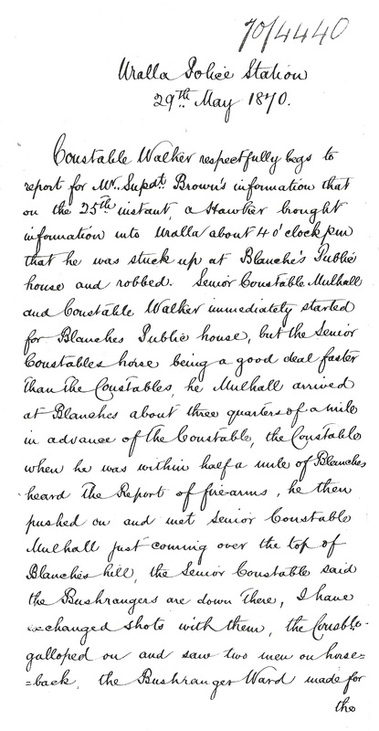 70/4440
Uralla Police Station
29th May 1870.
Constable Walker respectfully begs to
report for Mr. Supdt. Brown's information that
on the 25th instant, a Hawker brought
information into Uralla about 4 o'clock pm
that he was stuck up at Blanche's Public
house and robbed. Senior Constable Mulhall
and Constable Walker immediately started
for Blanches Public house, but the Senior
Constables horse being a good deal faster
than the Constables, he Mulhall arrived
at Blanches about three quarters of a mile
in advance of the Constable, the Constable
when he was within half a mile of Blanches
heard the Report of fire-arms, he then
pushed on and met Senior Constable
Mulhall just coming over the top of
Blanches hill, the Senior Constable said
the Bushrangers are down there, I have
exchanged shots with them, the Constble
galloped on and saw two men on horse=
=back, the Bushranger Ward made for
the